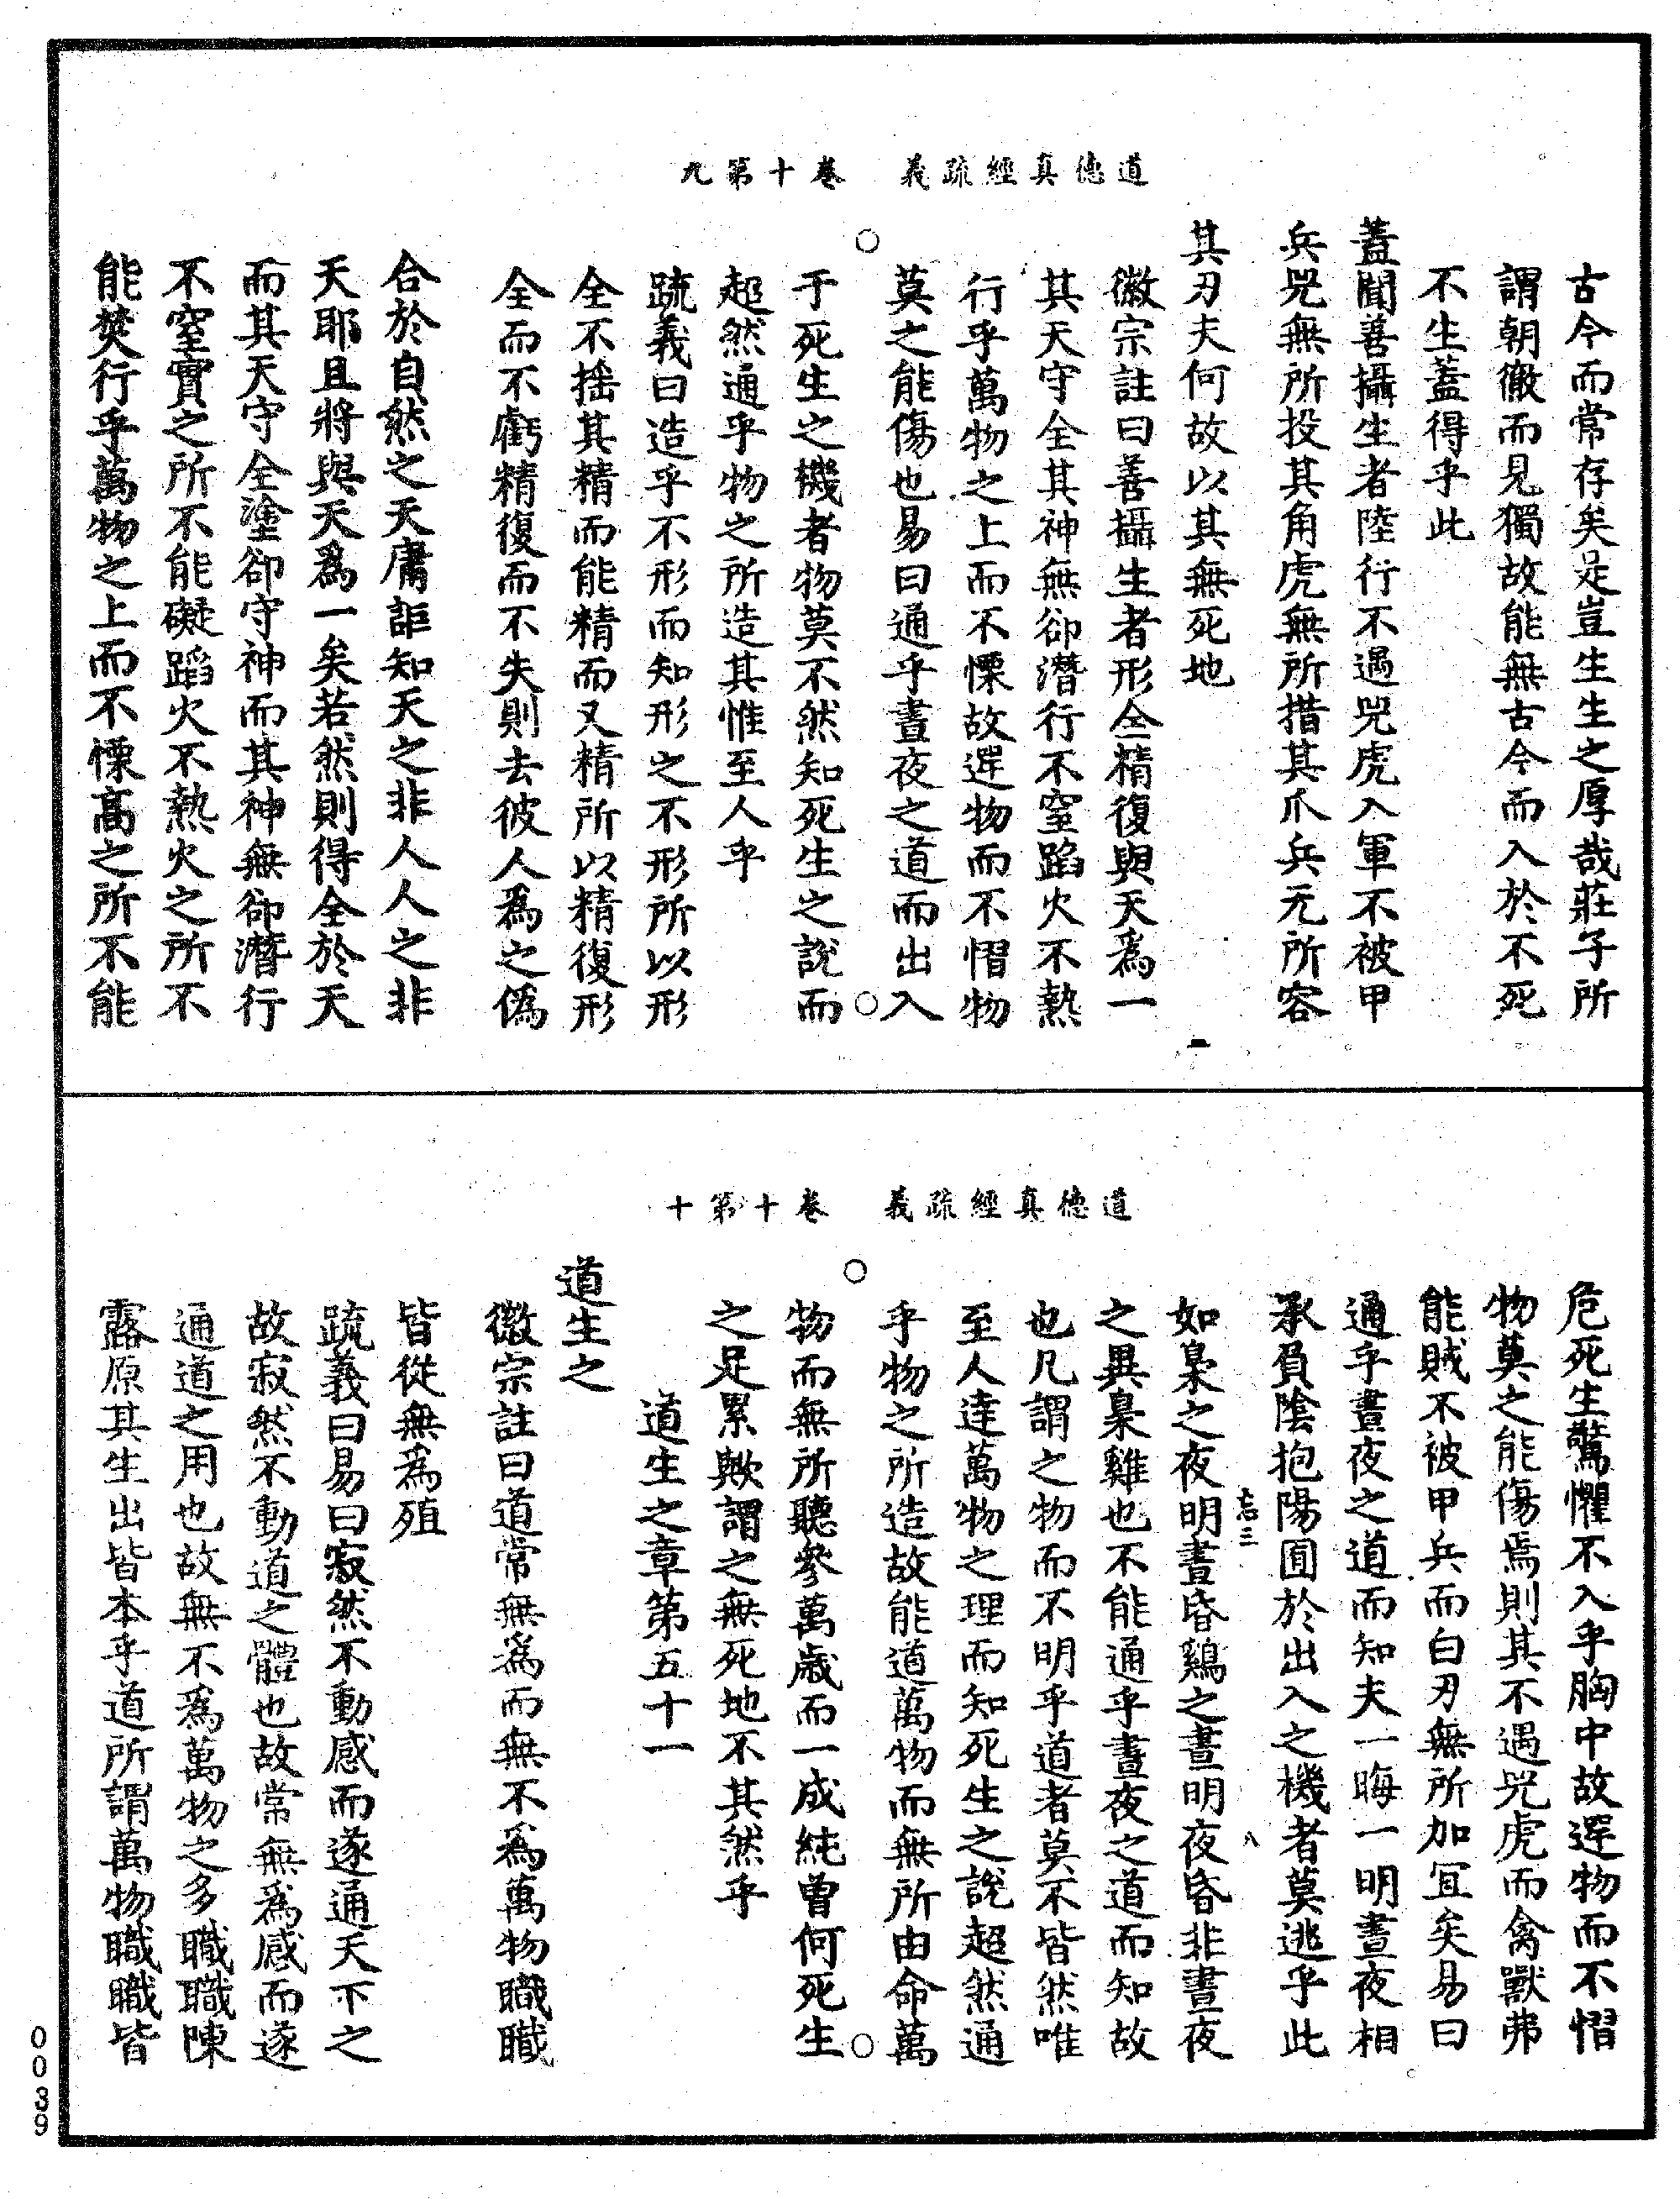 道德真經疏義　卷十第九
古今而常存矣是豈生生之厚哉莊子所
謂朝徹而見獨故能無古今而入於不死
不生蓋得乎此
蓋聞善攝生者陸行不遇兕虎入軍不被甲
兵兕無所投其角虎無所措其爪兵无所容
其刃夫何故以其無死地
徽宗註曰善攝生者形全精復與天為一
其天守全其神無郤潛行不窒蹈火不熱
行乎萬物之上而不慄故遌物而不慴物
莫之能傷也易曰通乎晝夜之道而出入
于死生之機者物莫不然知死生之說而
超然通乎物之所造其惟至人乎
疏義曰造乎不形而知形之不形所以形
全不揺其精而能精而又精所以精復形
全而不虧精復而不失則去彼人為之偽
合於自然之天庸詎知天之非人人之非
天耶且將與天為一矣若然則得全於天
而其天守全塗郤守神而其神無郤潛行
不窒實之所不能礙蹈火不熱火之所不
能焚行乎萬物之上而不慄高之所不能
道德真經疏義　卷十第十
危死生驚懼不入乎胸中故遌物而不慴
物莫之能傷焉則其不遇兕虎而禽獸弗
能賊不被甲兵而白刃無所加宜矣易曰
通乎晝夜之道而知夫一晦一明晝夜相
承負陰抱陽囿於出入之機者莫逃乎此
忘三　八
如梟之夜明晝昏鷄之晝明夜昏非晝夜
之異梟雞也不能通乎晝夜之道而知故
也凡謂之物而不明乎道者莫不皆然唯
至人達萬物之理而知死生之說超然通
乎物之所造故能道萬物而無所由命萬
物而無所聽參萬歲而一成純曾何死生
之足累歟謂之無死地不其然乎
道生之章第五十一
道生之
徽宗註曰道常無為而無不為萬物職職
皆從無為殖
疏義曰易曰寂然不動感而遂通天下之
故寂然不動道之體也故常無為感而遂
通道之用也故無不為萬物之多職職陳
露原其生出皆本乎道所謂萬物職職皆
0039